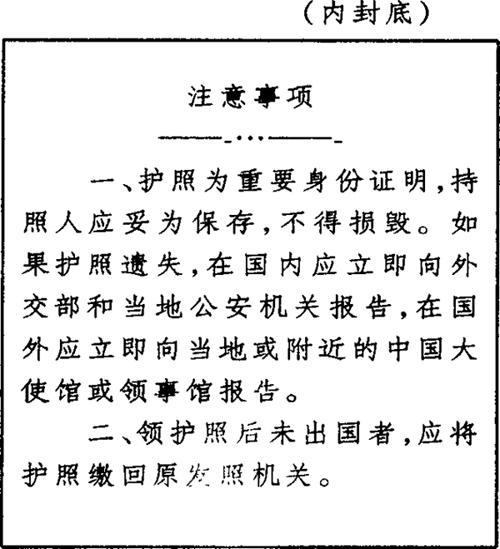 (内封底)
注意事项
一、护照为重要身份证明,持
照人应妥为保存,不得损毁。如
果护照遗失,在国内应立即向外
交部和当地公安机关报告,在国
外应立即向当地或附近的中国大
使馆或领事馆报告。
二、领护照后未出国者,应将
护照缴回原发照机关。